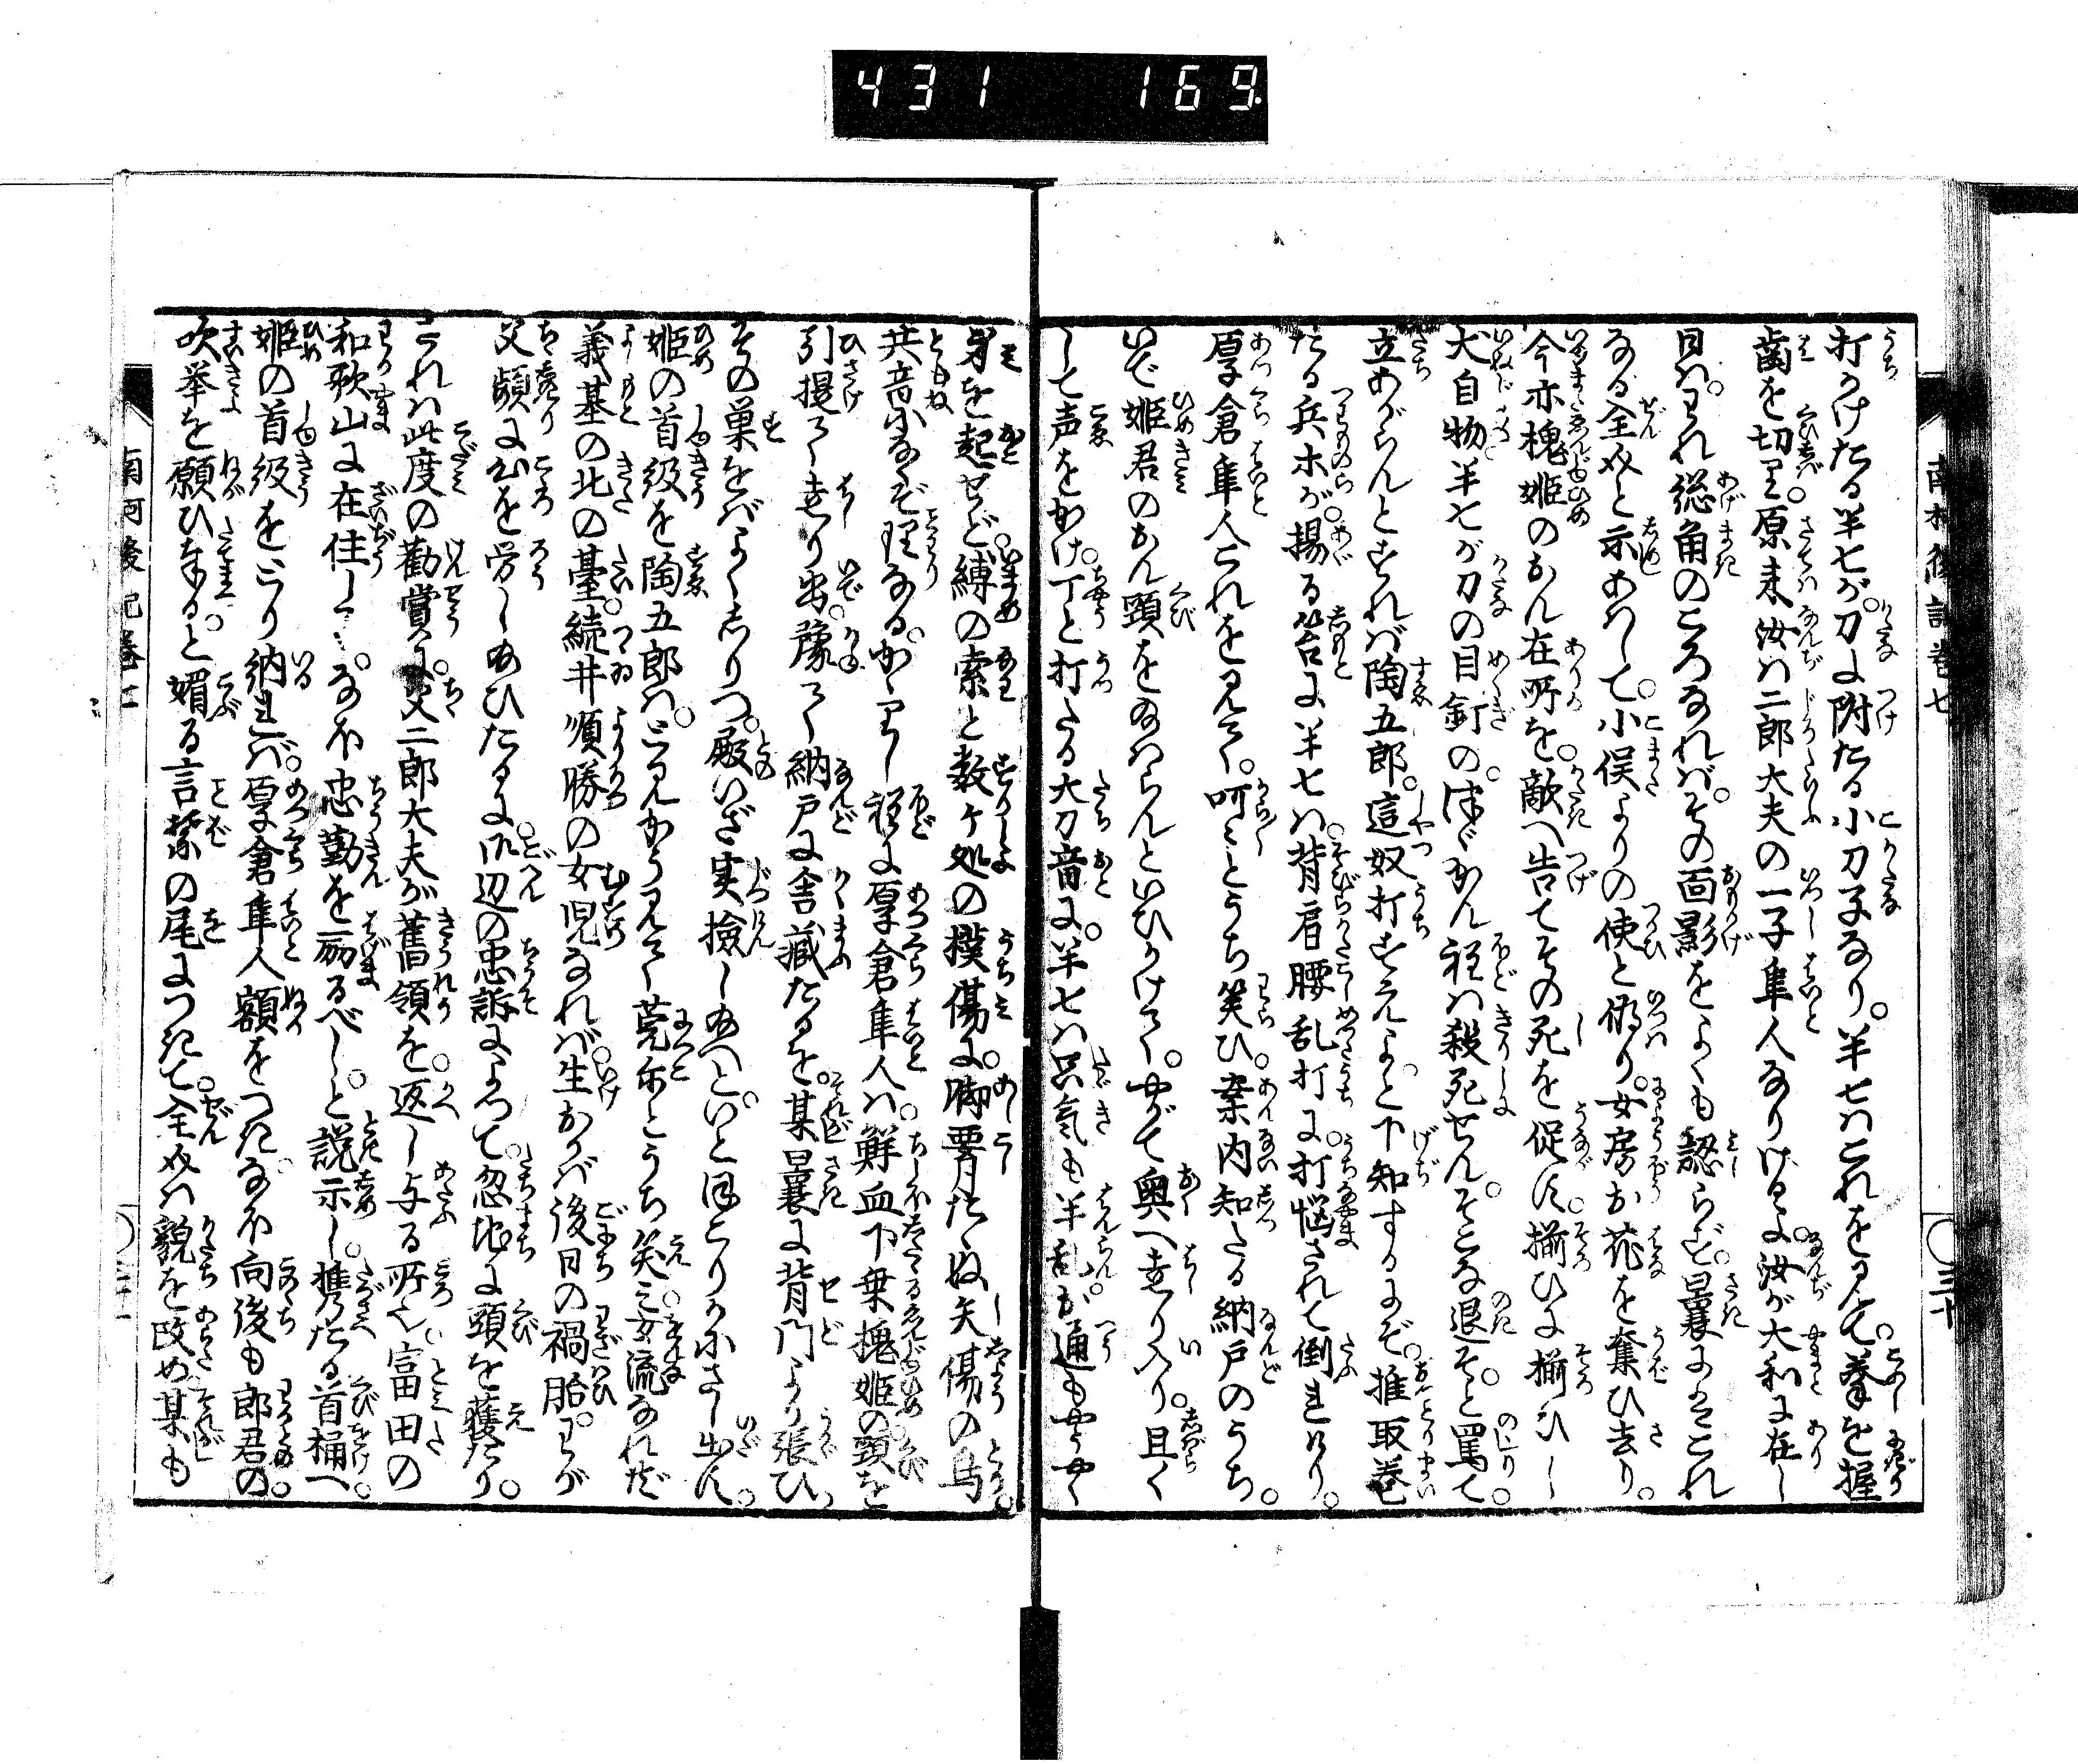 431 169
南柯後記巻七
三十
打かけたる半七が。刀に附たる小刀子なり。半七はこれを見て。拳を握
歯を切り。原来汝は二郎大夫の一子隼人なりけるよ。汝が大和に在し
日は。われ総角のころなれば。その面影をよくも認らず。曩にはこれ
なる全奴と示あはして。小俣よりの使と偽り。女房お花を奪ひ去り。
今亦槐姫のおん在所を。敵へ告てその死を促す。揃ひに揃ひし
犬自物。半七が刀の目釘の。つゞかん程は殺死せん。そこな退そと罵て。
立あがらんとすれば陶五郎。這奴打すえよと下知するにぞ。推取巻
たる兵ホが。揚る笞に半七は。背肩腰乱打に。打悩されて倒れけり。
厚倉隼人これを見て。呵〻とうち笑ひ。案内知たる納戸のうち。
いで姫君のおん頸を給はらんといひかけて。やがて奥へ走り入り。且く
して声をかけ。丁と打たる大刀音に。半七は只気も半乱。お通もやうやく
身を起せど。縛の索と数ケ処の撲傷に。脚腰たゝぬ矢傷の鳥
共音になくぞ理なる。かゝりし程に厚倉隼人は。鮮血下垂槐姫の頸を
引提て走り出。豫て納戸に舎蔵たるを。某曩に背門より張ひ
その巣をばよくしりつ。殿いざ実撿し給へと。いとほこりかにさし出す。
姫の首級を陶五郎は。とみかうみて莞尓とうち笑み。女流なれども
義基の北の臺。続井順勝の女児なれば。生おかば後日の禍胎。わが
父頻に心を労し給ひたるに。御辺の忠訴によつて。忽地に頭を獲たり。
されば此度の勸賞に。父二郎大夫が舊領を。返し与る所也。富田の
和歌山に在住して。なほ忠勤を励るべし。と説示し。携たる首桶へ。
姫の首級をとり納れば。厚倉隼人額をつき。なほ向後も郎君の。
吹挙を願ひ奉る。と媚る言葉の尾につきて。全奴は貌を改め。某も
南柯後記巻七